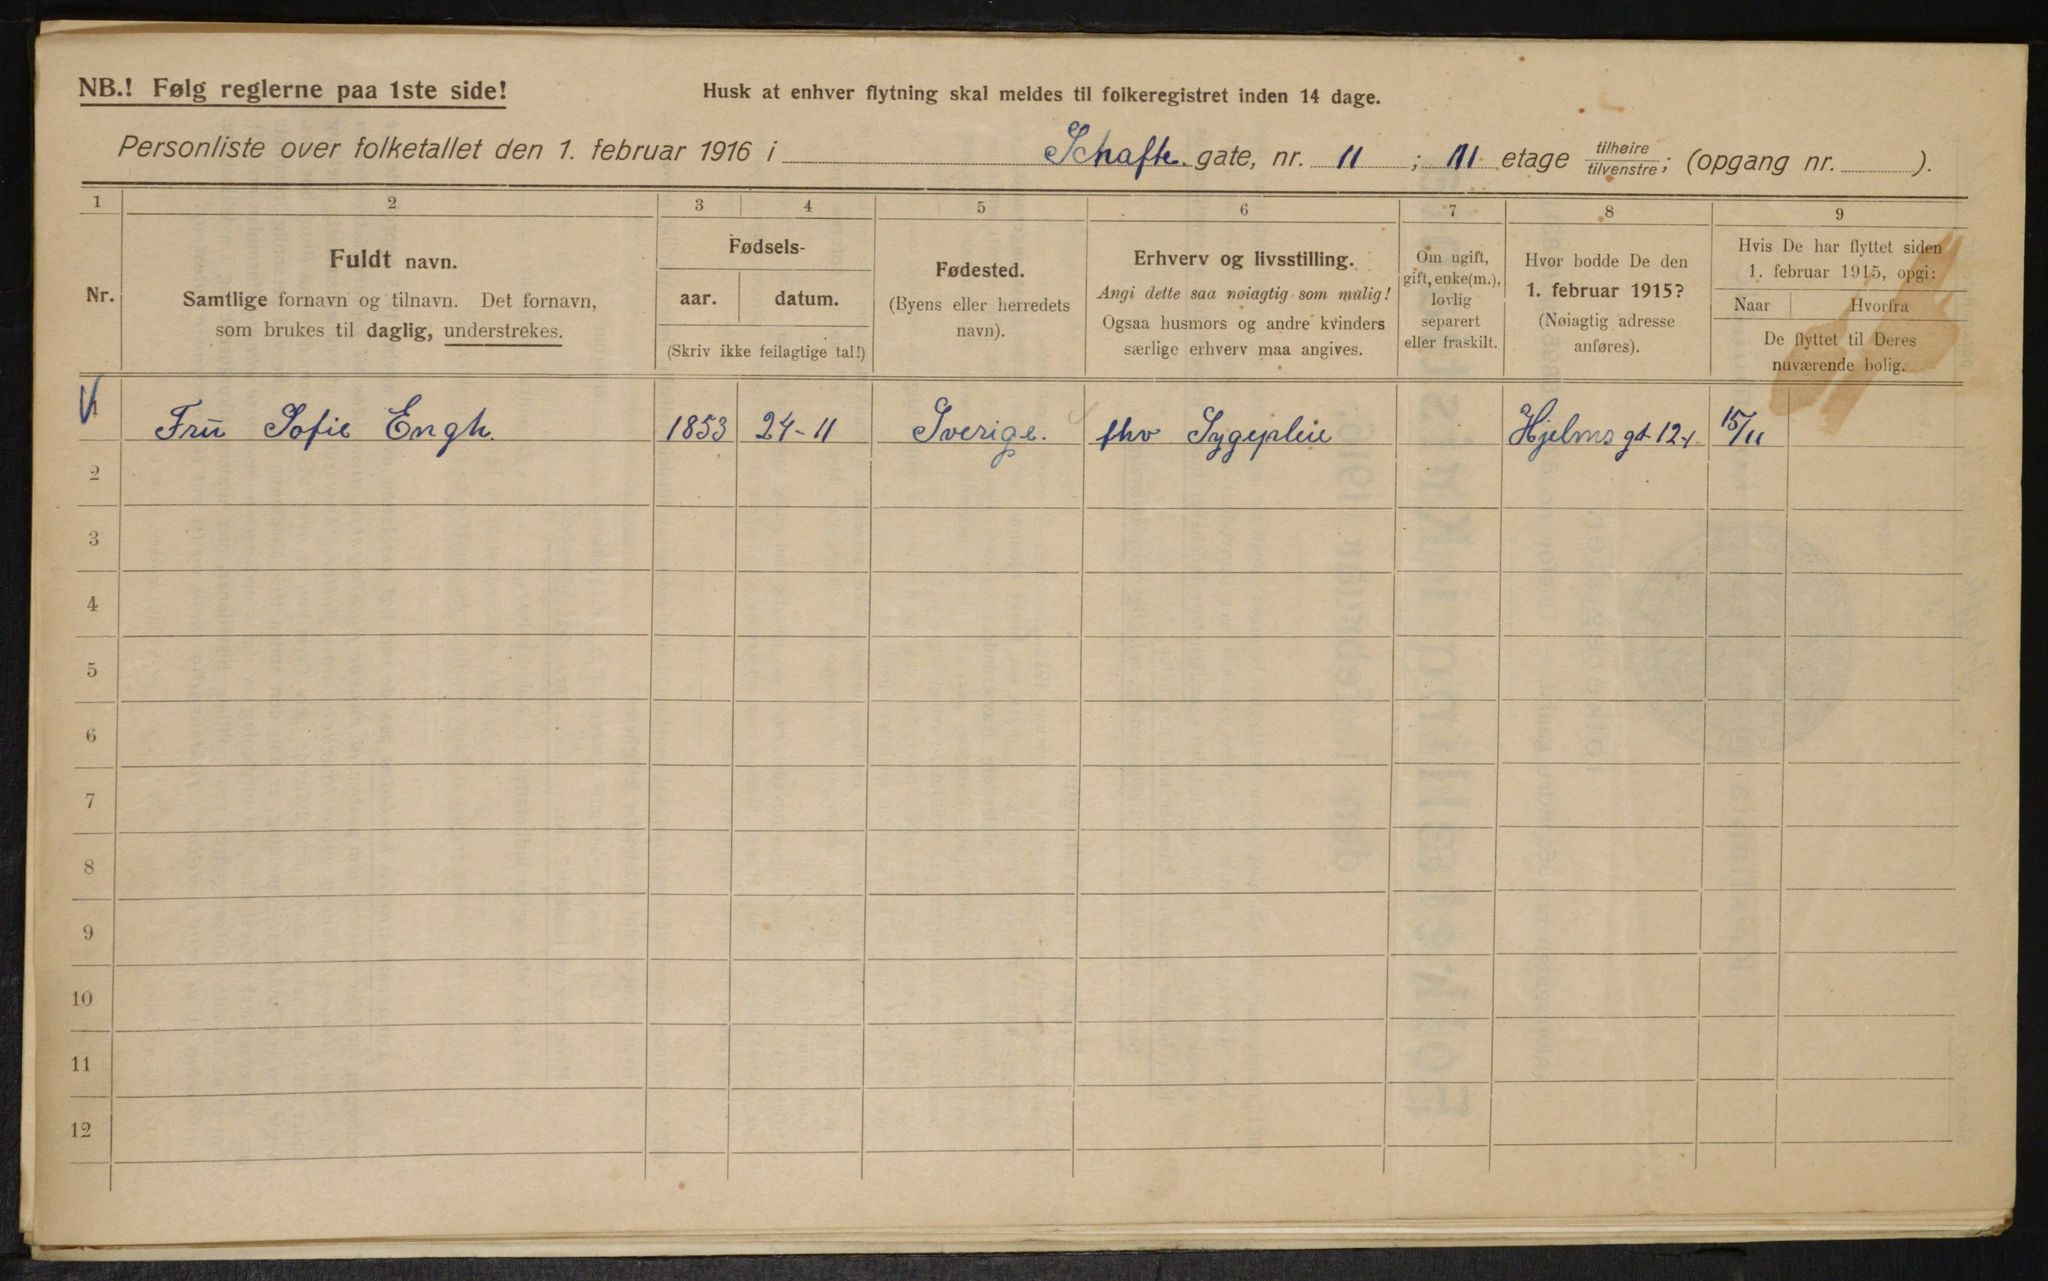 NB.! Følg reglerne paa 1ste side!
Husk at enhver flytning skal meldes til folkeregistret inden 14 dage.
Personliste over folketallet den 1. februar 1916 i Schafte. gate, nr. 11 ; III etage tilhøire/tilvenstre; (opgang nr. ).
1 2 3 4 5 6 7 8 9
Nr.
Fuldt navn.
Samtlige fornavn og tilnavn. Det fornavn,
som brukes til daglig, understrekes.
Fødsels-
aar. datum.
(Skriv ikke feilagtige tal!)
Fødested.
(Byens eller herredets
navn).
Erhverv og livsstilling.
Angi dette saa nøiagtig som mulig!
Ogsaa husmors og andre kvinders
særlige erhverv maa angives.
Om ugift,
gift, enke(m.),
lovlig
separert
eller fraskilt.
Hvor bodde De den
1. februar 1915?
(Nøiagtig adresse
anføres).
Hvis De har flyttet siden
1. februar 1915, opgi:
Naar Hvorfra
De flyttet til Deres
nuværende bolig.
1 Fru Sofie Engh. 1853 24-11 Sverige. fhv Sygepleie Hjelms gt 12 15/11
2
3
4
5
6
7
8
9
10
11
12